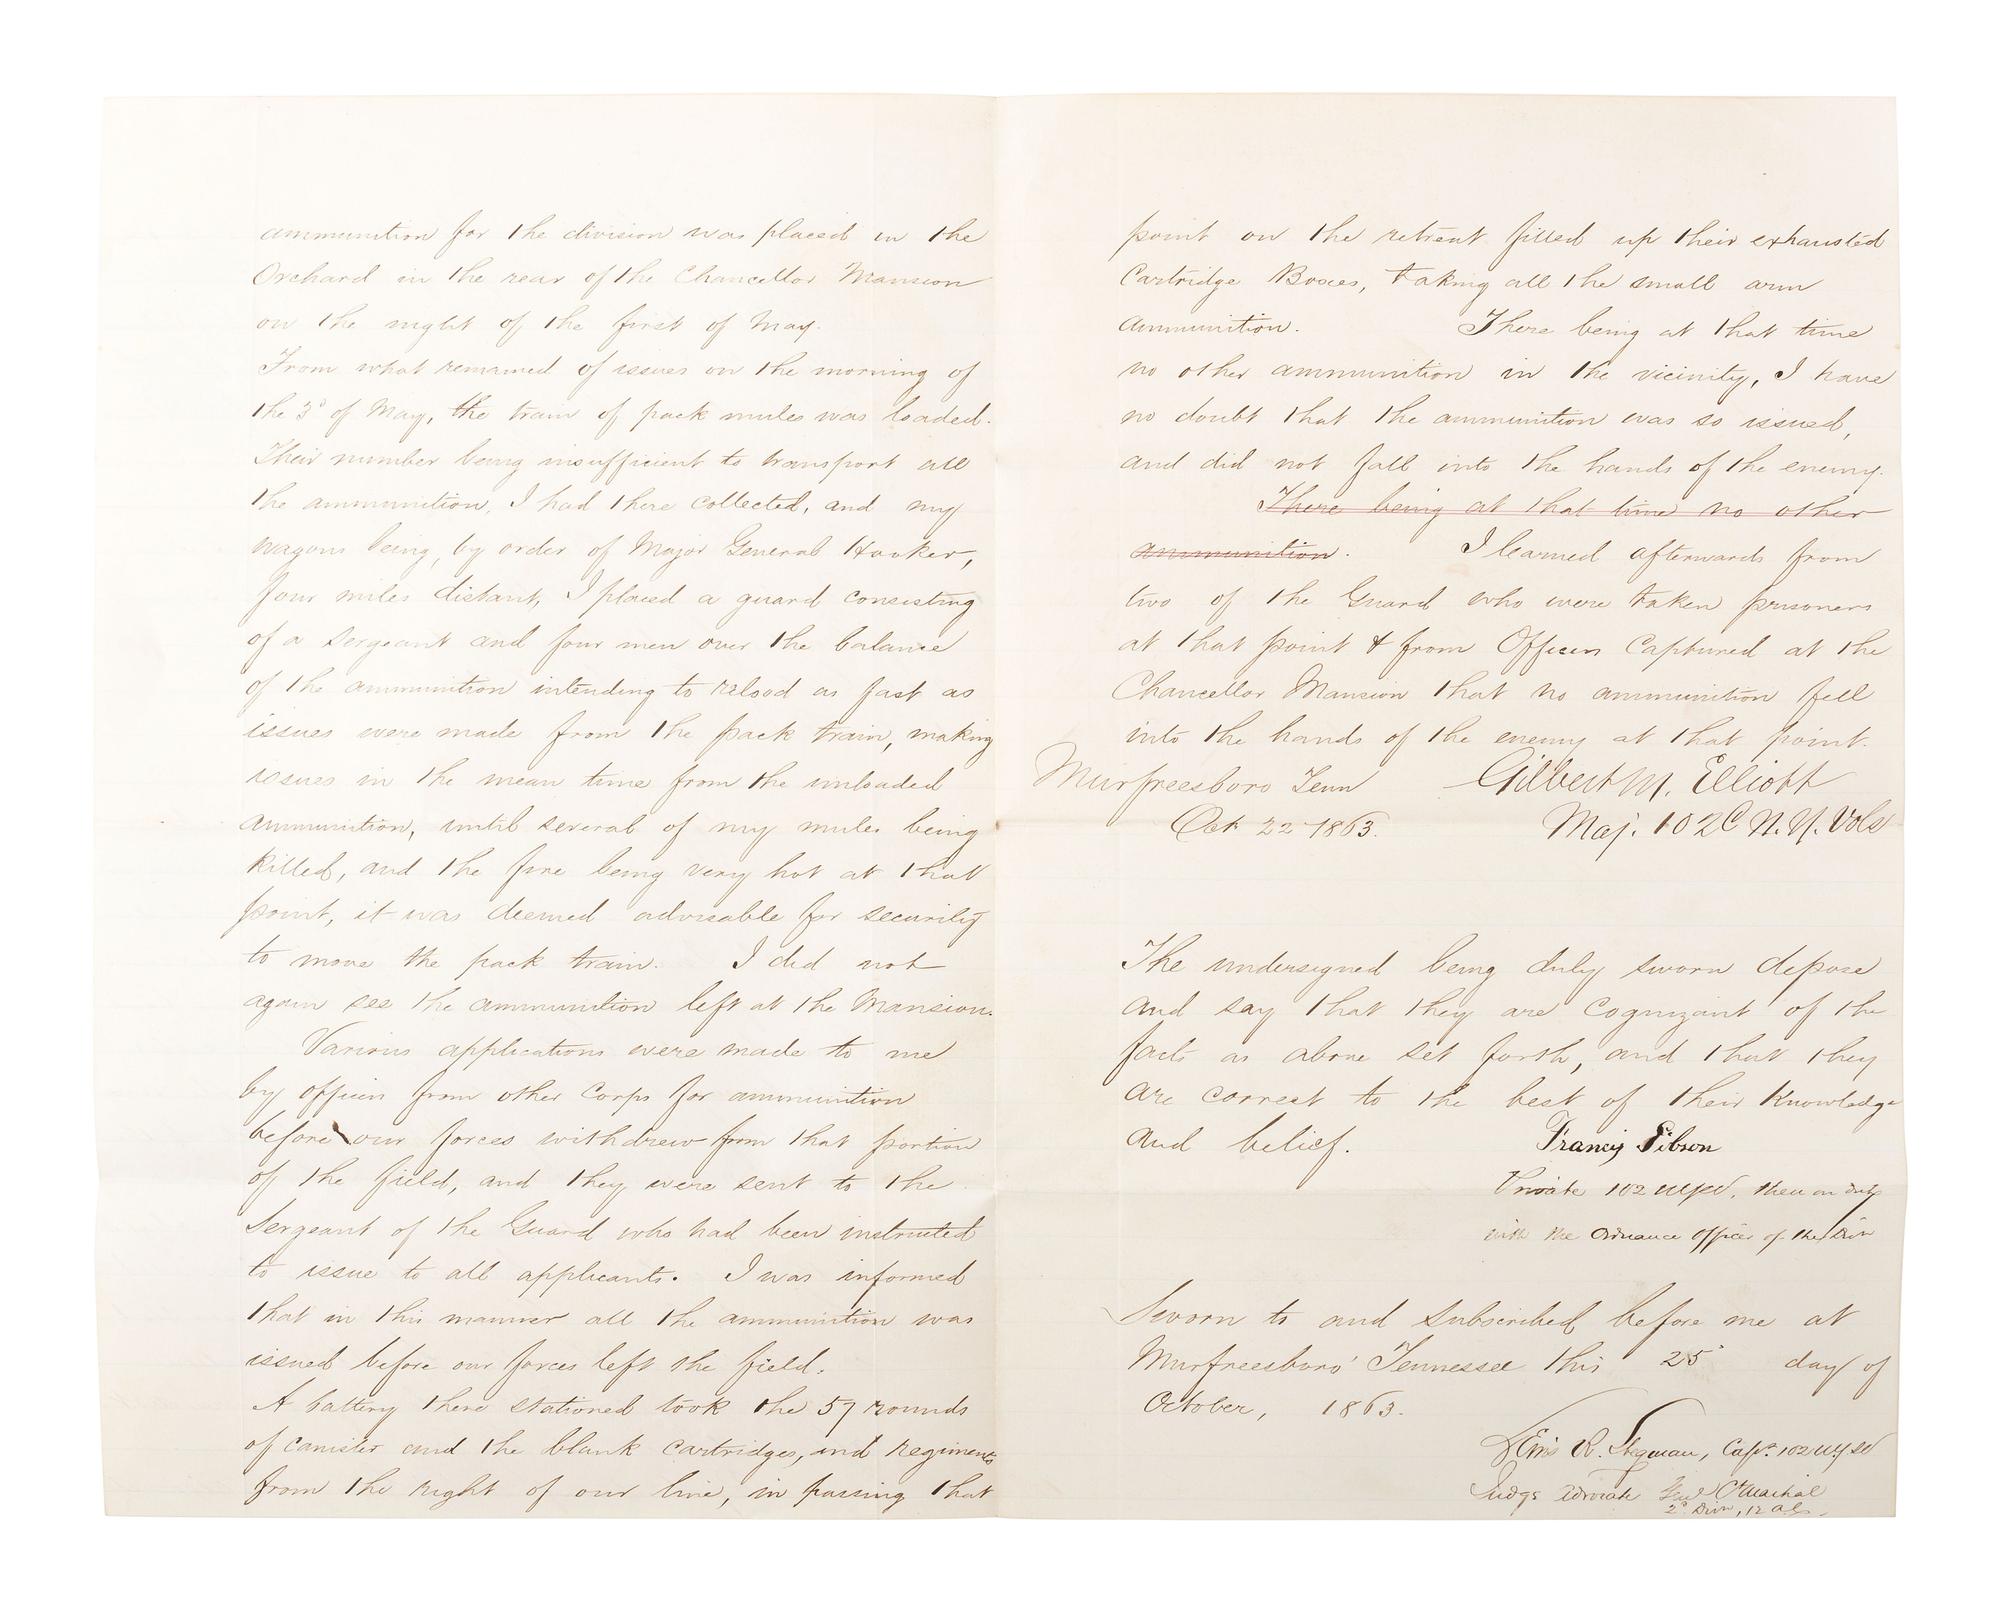 ammunition for the division was placed in the
Orchard in the rear of the Chancellor Mansion
on the night of the first of May.
From what remained of issues on the morning of
the 3d of May, the train of pack mules was loaded.
Their number being insufficient to transport all
the ammunition, I had there collected, and my
wagons being, by order of Major General Hooker,
four miles distant, I placed a guard consisting
of a Sergeant and four men over the balance
of the ammunition intending to reload as fast as
issues were made from the pack train, making
issues in the mean time from the unloaded
ammunition, until several of my mules being
killed, and the fire being very hot at that
point, it was deemed advisable for security
to move the pack train. I did not
again see the ammunition left at the Mansion.
Various applications were made to me
by officers from other Corps for ammunition
before our forces withdrew from that portion
of the field, and they were sent to the
Sergeant of the Guard who had been instructed
to issue to all applicants. I was informed
that in this manner all the ammunition was
issued before our forces left the field.
A battery there stationed took the 57 rounds
of canister and the blank cartridges, and regiments
from the right of our line, in passing that
point on the retreat filled up their exhausted
Cartridge Boxes, taking all the small arm
ammunition. There being at that time
no other ammunition in the vicinity, I have
no doubt that the ammunition was so issued,
and did not fall into the hands of the enemy.
There being at that time no other
ammunition. I learned afterwards from
two of the Guard who were taken prisoners
at that point & from Officers Captured at the
Chancellor Mansion that no ammunition fell
into the hands of the enemy at that point.
Murfreesboro Tenn Gilbert M. Elliott
Oct 22 1863. Maj. 102d N.Y. Vols
The undersigned being duly sworn depose
and say that they are Cognizant of the
facts as above set forth, and that they
are correct to the best of their Knowledge
and belief. Francis Gibson
Private 102 NYV, then on duty
with the Ordnance Officer of the Divn
Sworn to and Subscribed before me at
Murfreesboro' Tennessee this 25" day of
October, 1863.
Lewis R. Stegman, Capt. 102 NY
Judge Advocate Genl Ct Martial
2d Divn, 12 A.C.